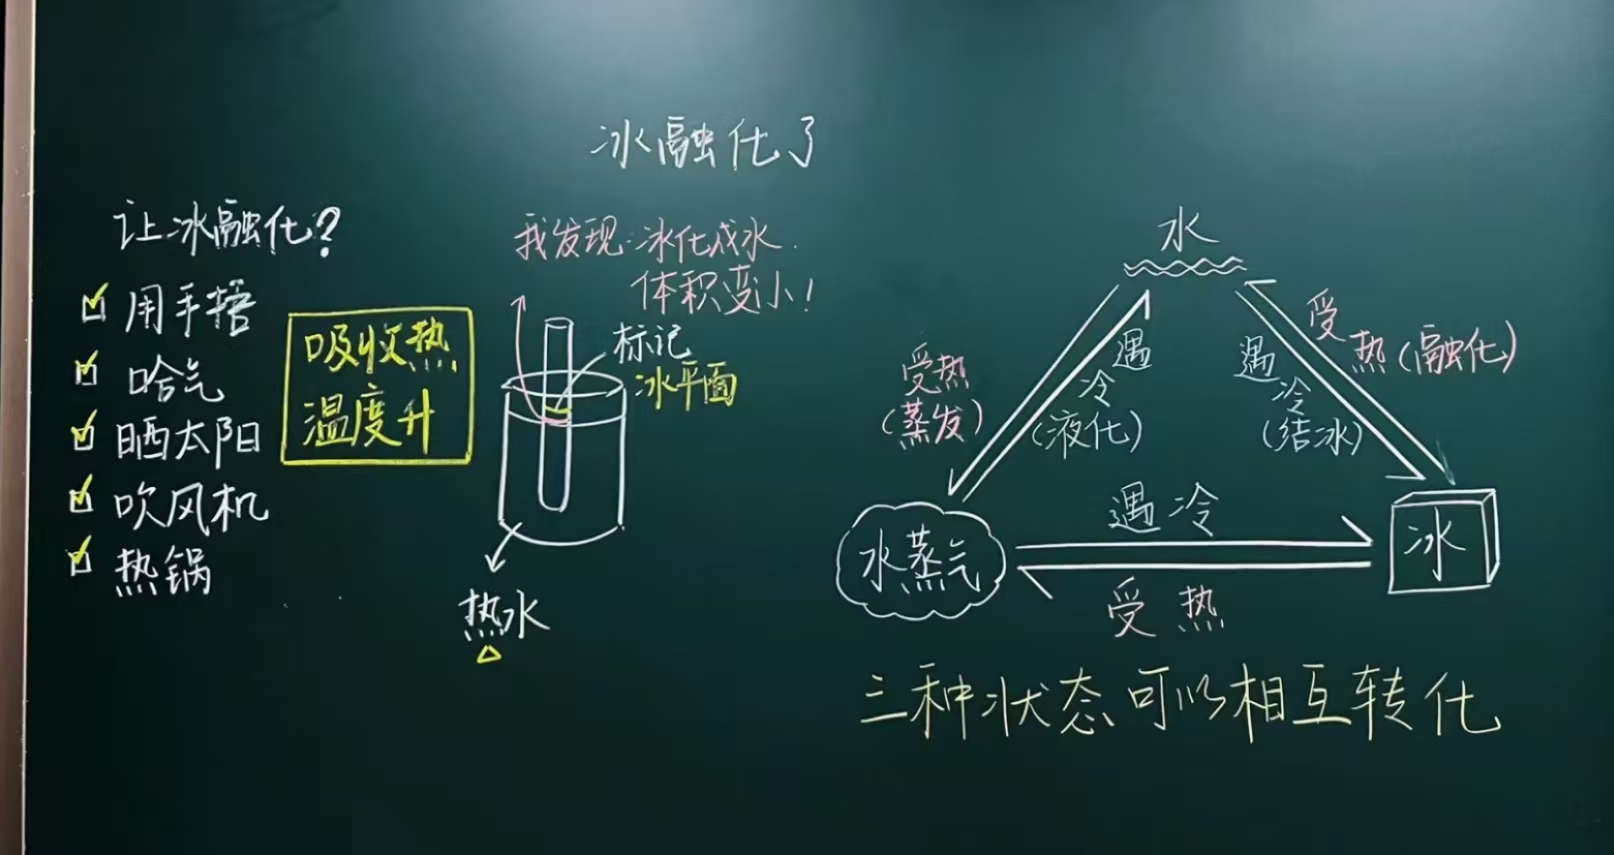 冰融化了
让冰融化?
用手捂
哈气
晒太阳
吹风机
热锅
吸收热
温度升
我发现:冰化成水
体积变小!
标记
冰平面
热水
水
受热
(蒸发)
遇冷
(液化)
遇冷
(结冰)
受热(融化)
水蒸气
遇冷
受热
冰
三种状态可以相互转化